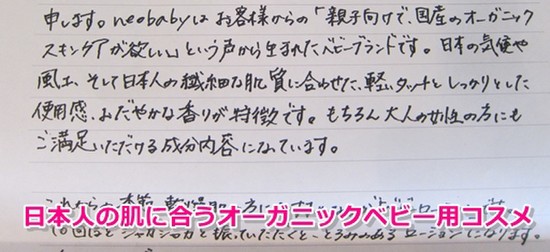 申します。neobabyはお客様からの「親子向けで、国産のオーガニック
スキンケアが欲しい」という声から生まれたベビーブランドです。日本の気候や
風土、そして日本人の繊細な肌質に合わせた、軽いタッチとしっかりとした
使用感、おだやかな香りが特徴です。もちろん大人の女性の方にも
ご満足いただける成分内容になっています。
日本人の肌に合うオーガニックベビー用コスメ
10回ほどシャカシャカと振っていただくと、とろみのあるローションになります。